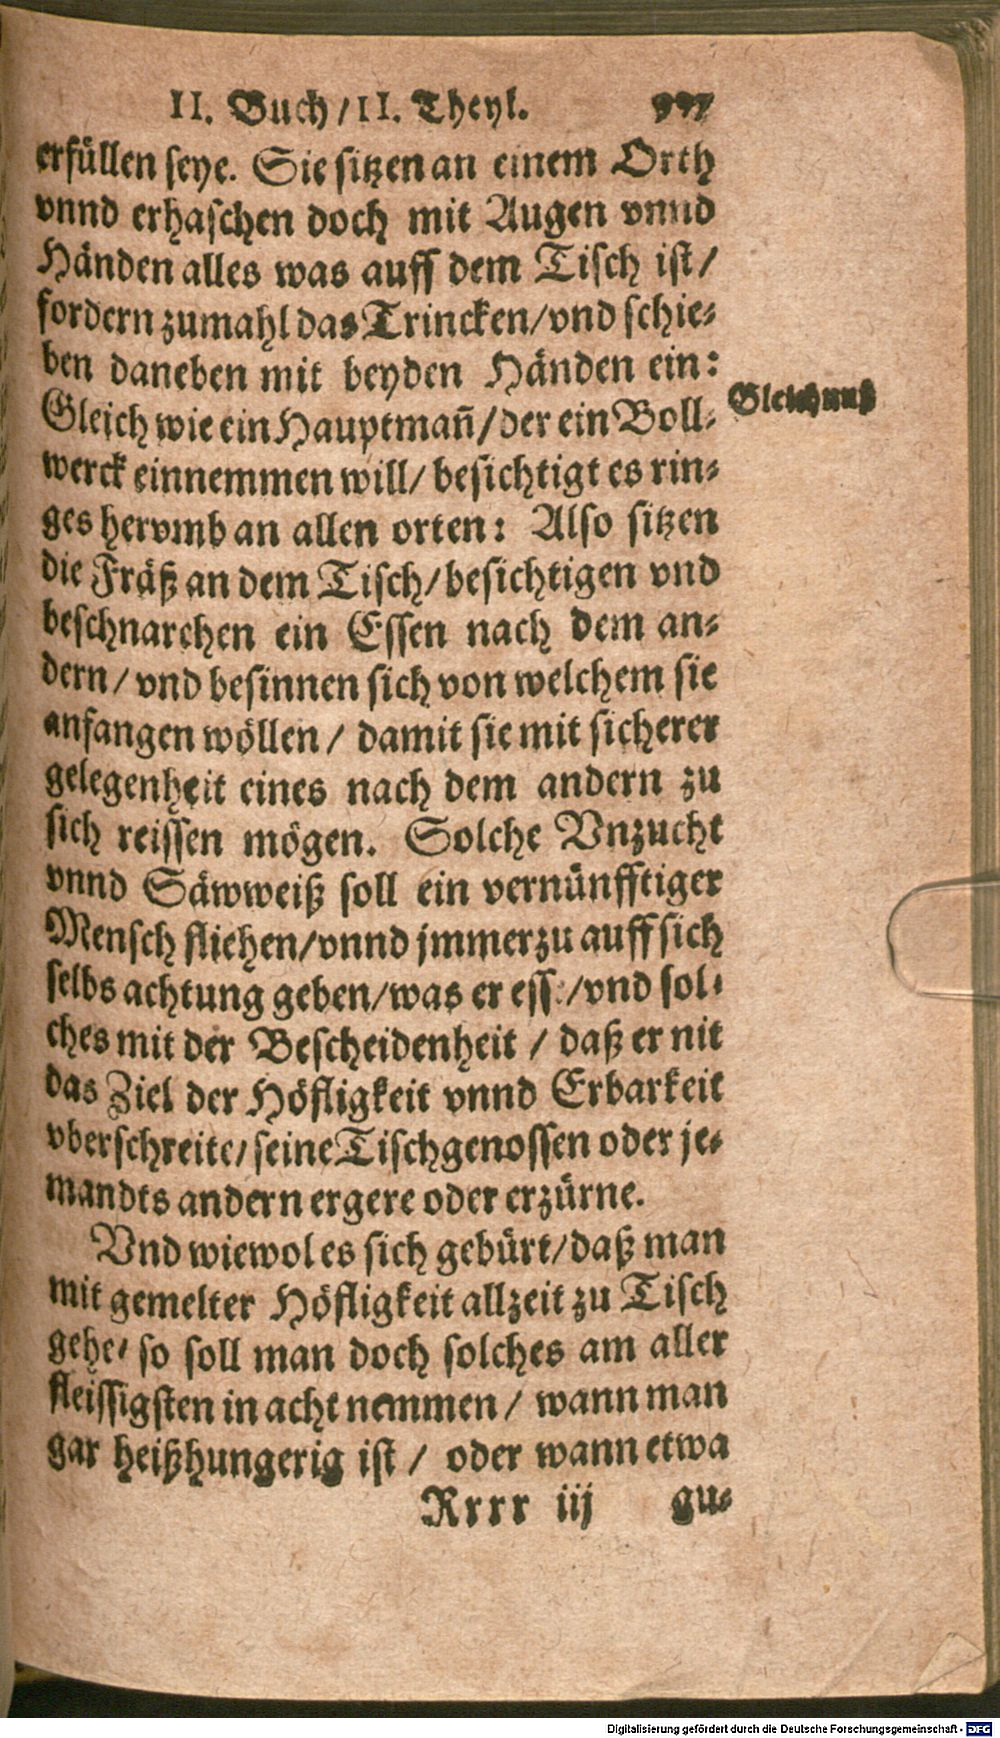 II. Buch/II. Theyl. 997
erfüllen seye. Sie sitzen an einem Orth
vnnd erhaschen doch mit Augen vnnd
Händen alles was auff dem Tisch ist/
fordern zumahl das Trincken/vnd schie-
ben daneben mit beyden Händen ein:
Gleichnuß
Gleich wie ein Hauptmañ/der ein Boll-
werck einnemmen will/ besichtigt es rin-
ges hervmb an allen orten: Also sitzen
die Fräß an dem Tisch/besichtigen vnd
beschnarchen ein Essen nach dem an-
dern/ vnd besinnen sich von welchem sie
anfangen wöllen/ damit sie mit sicherer
gelegenheit eines nach dem andern zu
sich reissen mögen. Solche Vnzucht
vnnd Säwweiß soll ein vernünfftiger
Mensch fliehen/vnnd jmmerzu auff sich
selbs achtung geben/was er ess:/vnd sol-
ches mit der Bescheidenheit / daß er nit
das Ziel der Höfligkeit vnnd Erbarkeit
vberschreite/ seine Tischgenossen oder je-
mandts andern ergere oder erzürne.
Vnd wiewol es sich gebürt/daß man
mit gemelter Höfligkeit allzeit zu Tisch
gehe/ so soll man doch solches am aller
fleissigsten in acht nemmen/ wann man
gar heißhungerig ist / oder wann etwa
Rrrr iij gu-
Digitalisierung gefördert durch die Deutsche Forschungsgemeinschaft - DFG